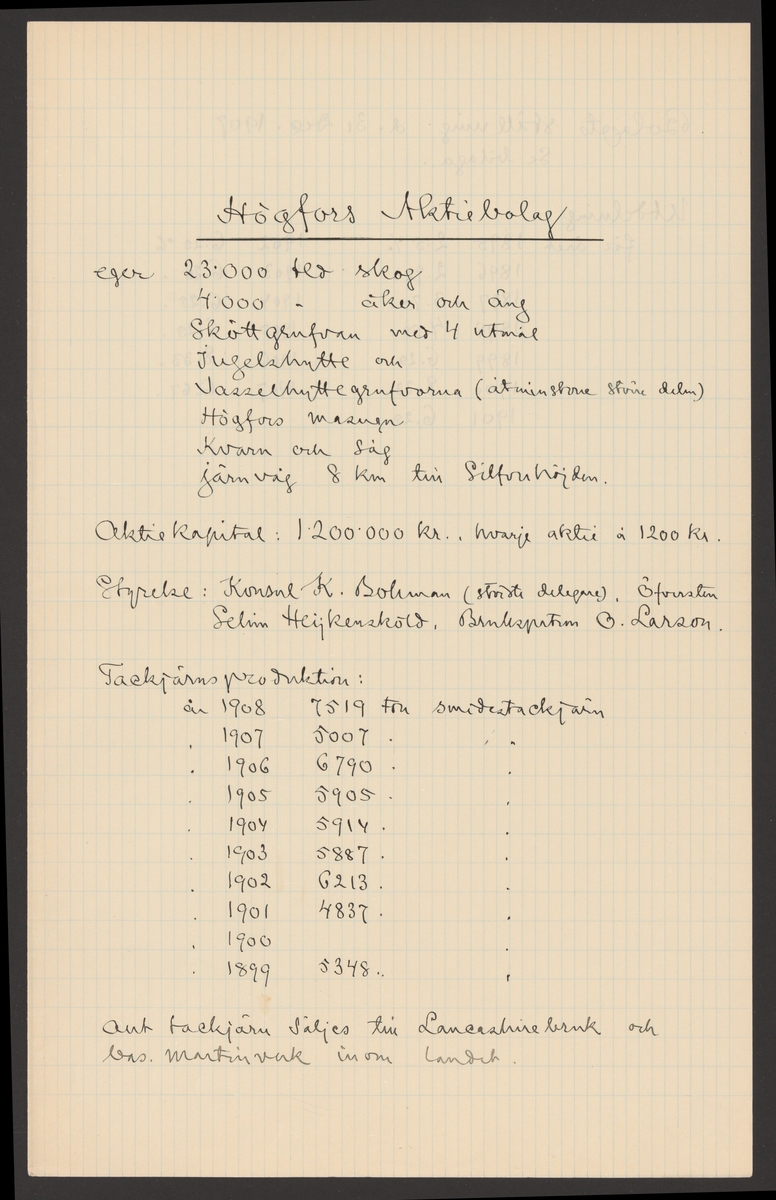 Högfors Aktiebolag
eger 23·000 tld skog
4·000 " åker och äng
Sköttgrufvan med 4 utmål
Jugelshytte och
Vasselhyttegrufvorna (åtminstone större delen)
Högfors masugn
Kvarn och Såg
järnväg 8 km till Silfverhöjden.
Aktiekapital: 1·200·000 kr., hvarje aktie à 1200 kr.
Styrelse: Konsul K. Bohman (största delegare), Öfversten
Selim Heijkensköld, Brukspatron O. Larson.
Tackjärnsproduktion:
år 1908 7519 ton smidestackjärn
" 1907 5007 " " "
" 1906 6790 " "
" 1905 5905 " "
" 1904 5914 " "
" 1903 5887 " "
" 1902 6213 " "
" 1901 4837 " "
" 1900 "
" 1899 5348 " "
Allt tackjärn säljes till Lancashirebruk och
bas. martinverk inom landet.